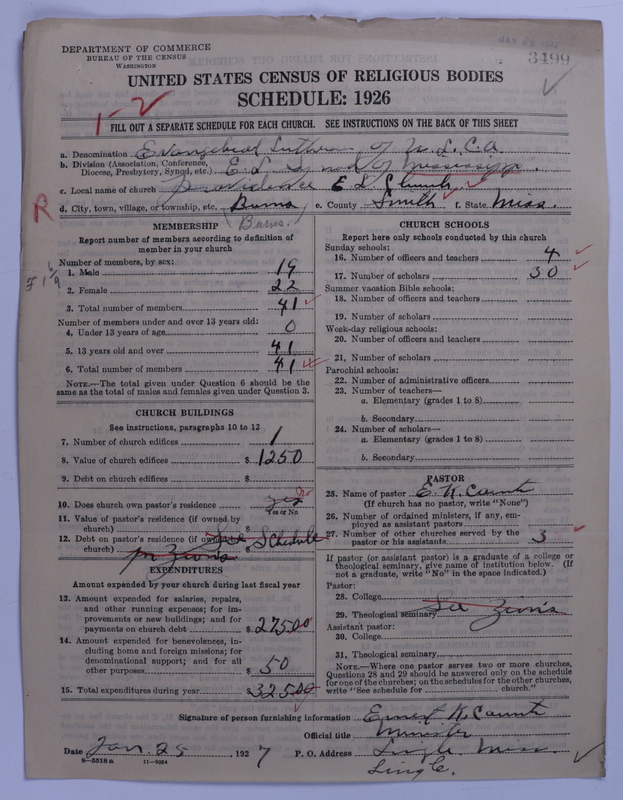 DEPARTMENT OF COMMERCE
BUREAU OF THE CENSUS
WASHINGTON
3499
UNITED STATES CENSUS OF RELIGIOUS BODIES
SCHEDULE: 1926
1-2
FILL OUT A SEPARATE SCHEDULE FOR EACH CHURCH. SEE INSTRUCTIONS ON THE BACK OF THIS SHEET
a. Denomination Evangelical Lutheran of U. L. C. A.
b. Division (Association, Conference, Diocese, Presbytery, Synod, etc.) E. L. Synod of Mississippi.
c. Local name of church Providence E L Church
R
d. City, town, village, or township, etc. Burns e. County Smith f. State Miss.
(Burns.)
MEMBERSHIP
Report number of members according to definition of
member in your church
Number of members, by sex:
1. Male 19
2. Female 22
3. Total number of members 41
Number of members under and over 13 years old:
4. Under 13 years of age 0
5. 13 years old and over 41
6. Total number of members 41
NOTE.—The total given under Question 6 should be the
same as the total of males and females given under Question 3.
CHURCH BUILDINGS
See instructions, paragraphs 10 to 12
7. Number of church edifices 1
8. Value of church edifices $ 1250
9. Debt on church edifices $
10. Does church own pastor's residence yes no
Yes or No
11. Value of pastor's residence (if owned by
church) $
12. Debt on pastor's residence (if owned by
church) $ See Schedule
for Zion's
EXPENDITURES
Amount expended by your church during last fiscal year
13. Amount expended for salaries, repairs,
and other running expenses; for im-
provements or new buildings; and for
payments on church debt $ 275.00
14. Amount expended for benevolences, in-
cluding home and foreign missions; for
denominational support; and for all
other purposes $ 50
15. Total expenditures during year $ 325.00
CHURCH SCHOOLS
Report here only schools conducted by this church
Sunday schools:
16. Number of officers and teachers 4
17. Number of scholars 30
Summer vacation Bible schools:
18. Number of officers and teachers
19. Number of scholars
Week-day religious schools:
20. Number of officers and teachers
21. Number of scholars
Parochial schools:
22. Number of administrative officers
23. Number of teachers—
a. Elementary (grades 1 to 8)
b. Secondary
24. Number of scholars—
a. Elementary (grades 1 to 8)
b. Secondary
PASTOR
25. Name of pastor E. K. Counts
(If church has no pastor, write "None")
26. Number of ordained ministers, if any, em-
ployed as assistant pastors
27. Number of other churches served by the
pastor or his assistants 3
If pastor (or assistant pastor) is a graduate of a college or
theological seminary, give name of institution below. (If
not a graduate, write "No" in the space indicated.)
Pastor:
28. College
29. Theological seminary See Zion's
Assistant pastor:
30. College
31. Theological seminary
NOTE.—Where one pastor serves two or more churches,
Questions 28 and 29 should be answered only on the schedule
for one of the churches; on the schedules for the other churches,
write "See schedule for ........ church."
Signature of person furnishing information Ernest K. Counts
Official title Minister
Date Jan. 25 1927 P. O. Address Lingle Miss.
8-5318 a 11-9034
Lingle.